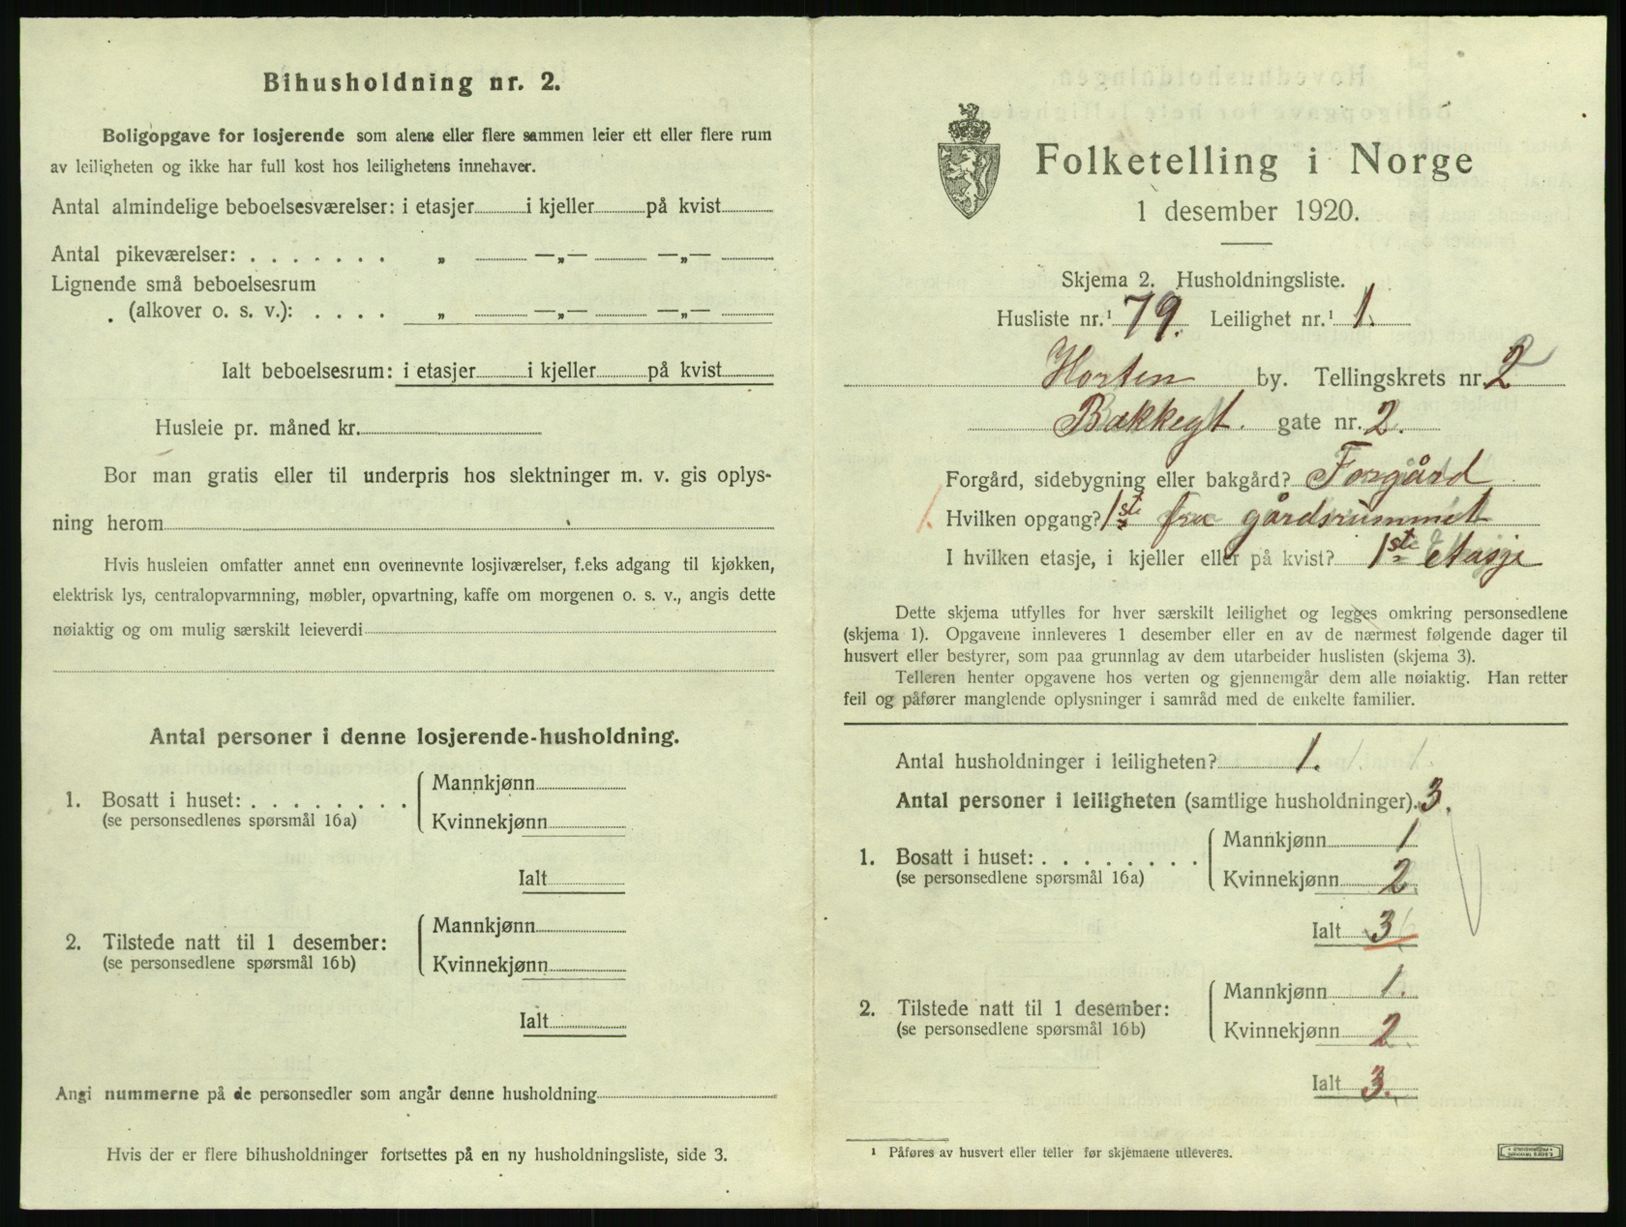 Bihusholdning nr. 2.
Boligopgave for losjerende som alene eller flere sammen leier ett eller flere rum
av leiligheten og ikke har full kost hos leilighetens innehaver.
Antal almindelige beboelsesværelser: i etasjer i kjeller på kvist
Antal pikeværelser: . . . . . . . „ —„— —„—
Lignende små beboelsesrum
(alkover o. s. v.): . . . . „ —„— —„—
Ialt beboelsesrum: i etasjer i kjeller på kvist
Husleie pr. måned kr.
Bor man gratis eller til underpris hos slektninger m. v. gis oplys-
ning herom
Hvis husleien omfatter annet enn ovennevnte losjiværelser, f.eks adgang til kjøkken,
elektrisk lys, centralopvarmning, møbler, opvartning, kaffe om morgenen o. s. v., angis dette
nøiaktig og om mulig særskilt leieverdi
Antal personer i denne losjerende-husholdning.
1. Bosatt i huset: . . . . . . . .
(se personsedlenes spørsmål 16a)
Mannkjønn
Kvinnekjønn
Ialt
2. Tilstede natt til 1 desember:
(se personsedlene spørsmål 16b)
Mannkjønn
Kvinnekjønn
Ialt
Angi nummerne på de personsedler som angår denne husholdning
Hvis der er flere bihusholdninger fortsettes på en ny husholdningsliste, side 3.
Folketelling i Norge
1 desember 1920.
Skjema 2. Husholdningsliste.
Husliste nr.¹ 79. Leilighet nr.¹ 1.
Horten by. Tellingskrets nr. 2
Bakkegt. gate nr. 2.
Forgård, sidebygning eller bakgård? Forgård
1. Hvilken opgang? 1ste fra gårdsrummet
I hvilken etasje, i kjeller eller på kvist? 1ste etasje
Dette skjema utfylles for hver særskilt leilighet og legges omkring personsedlene
(skjema 1). Opgavene innleveres 1 desember eller en av de nærmest følgende dager til
husvert eller bestyrer, som paa grunnlag av dem utarbeider huslisten (skjema 3).
Telleren henter opgavene hos verten og gjennemgår dem alle nøiaktig. Han retter
feil og påfører manglende oplysninger i samråd med de enkelte familier.
Antal husholdninger i leiligheten? 1.
Antal personer i leiligheten (samtlige husholdninger). 3.
1. Bosatt i huset: . . . . . . . .
(se personsedlene spørsmål 16a)
Mannkjønn 1
Kvinnekjønn 2
Ialt 3
2. Tilstede natt til 1 desember:
(se personsedlene spørsmål 16b)
Mannkjønn 1.
Kvinnekjønn 2.
Ialt 3.
¹ Påføres av husvert eller teller før skjemaene utleveres.